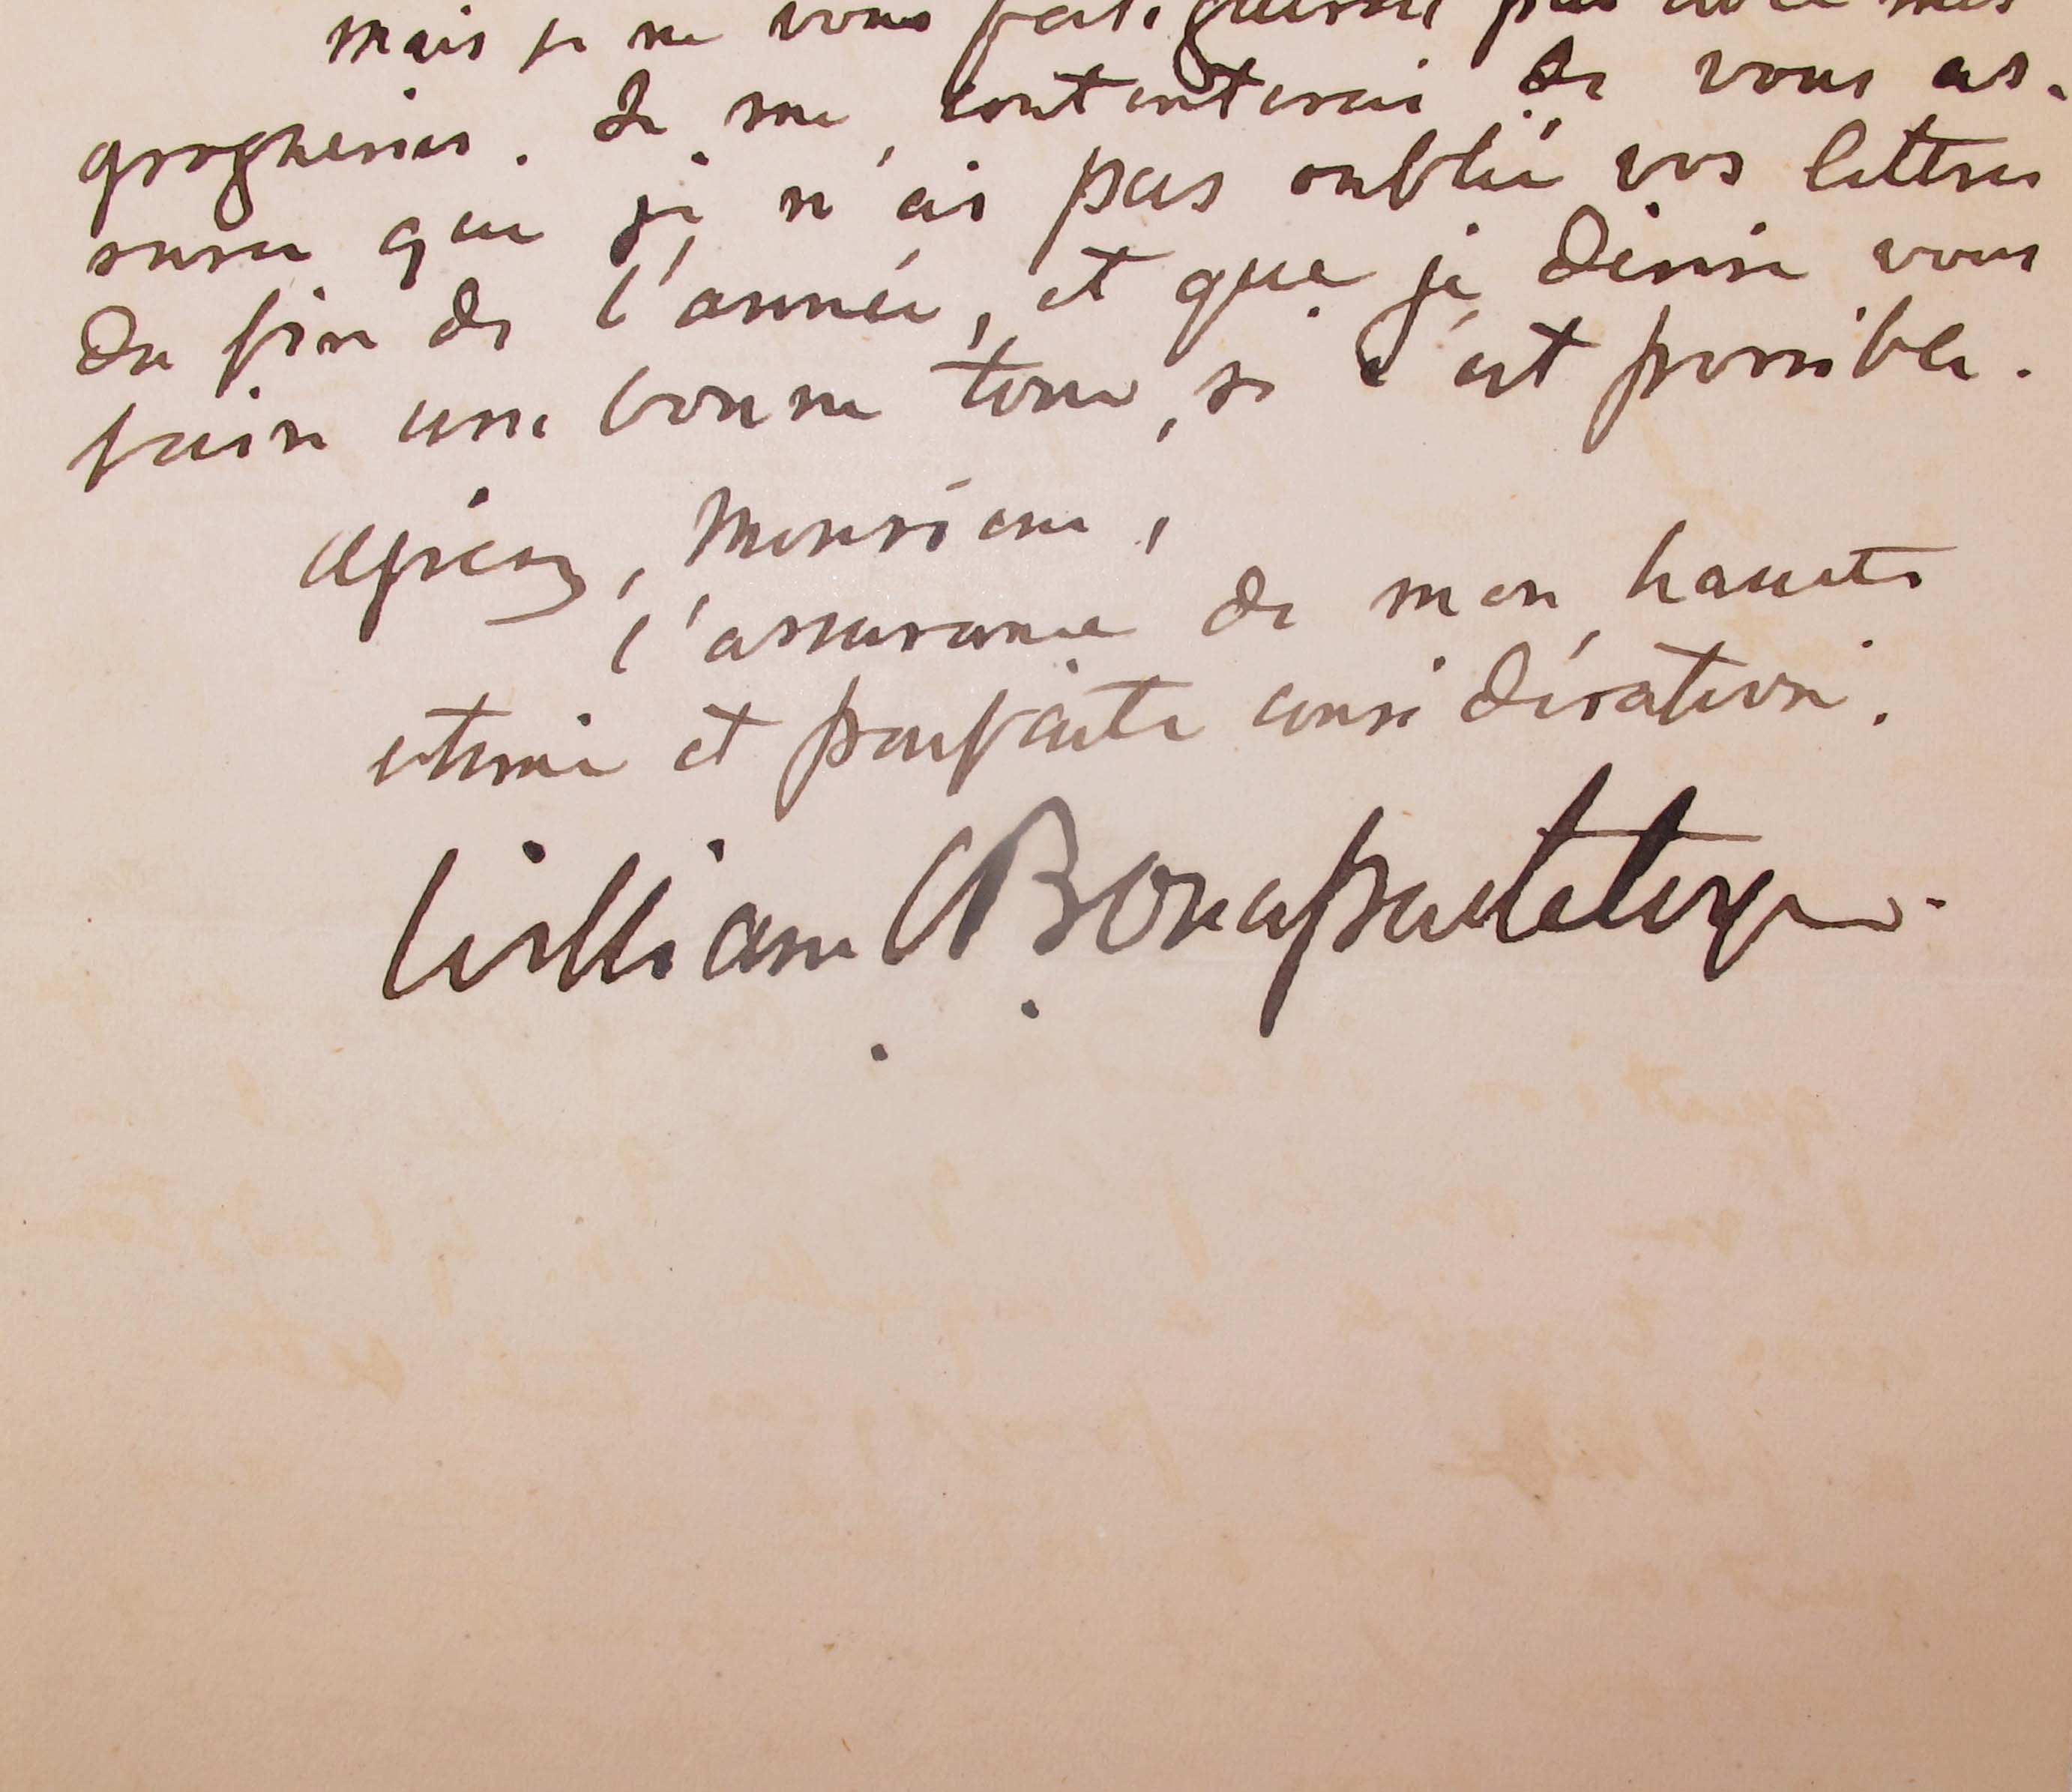 mais je ne vous fatiguerai pas avec mes
grogneries. Je me contenterai de vous as-
surer que je n'ai pas oublié vos lettres
du fin de l'année, et que je désire vous
faire une bonne tour, si c'est possible.
Agréez, Monsieur,
l'assurance de mon haute
estime et parfaite considération.
William Bonaparte Wyse.